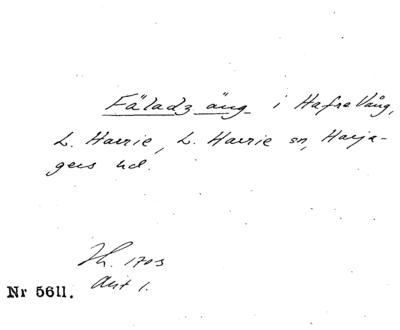 Fäladz äng i Hafre Vång,
L. Harrie, L. Harrie sn, Harja-
gers hd.
1703
Akt 1.
Nr 5611.